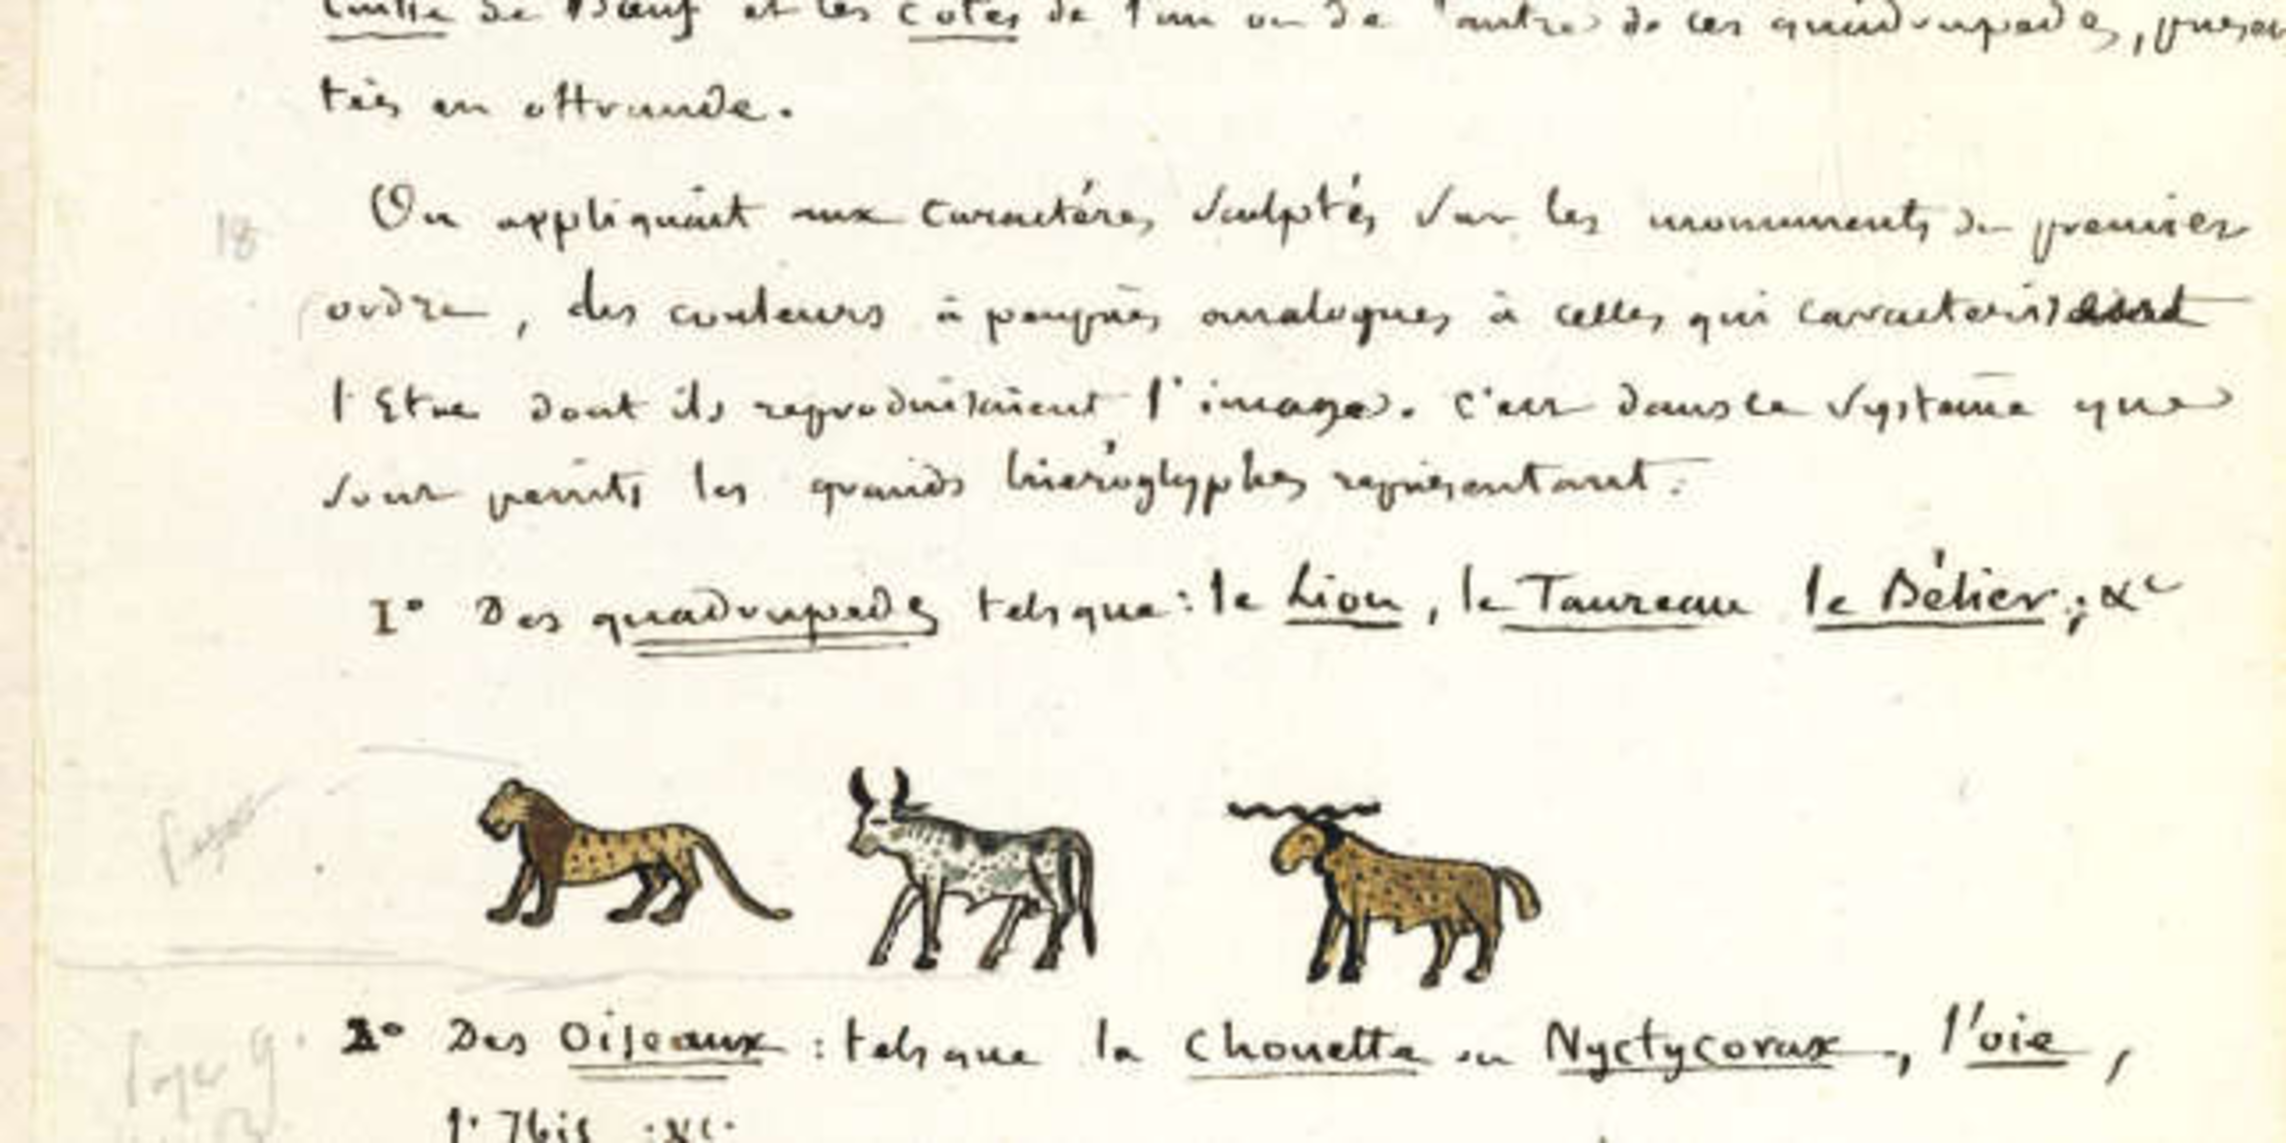 de Bœuf et les côtes de l'un ou de l'autre de ces quadrupedes, présen
tées en offrande.
18
On appliquait aux caractéres sculptés sur les monuments du premier
ordre, des couleurs à peuprès analogues à celles qui caracterisaient
l'Etre dont ils reproduisaient l'image. c'est dans ce systême que
sont peints les grands hiéroglyphes représentant:
1° Des quadrupedes tels que: le Lion, le Taureau le Bélier; &c
2° Des Oiseaux: tels que la Chouette ou Nyctycorax, l'oie,
l'Ibis &c.